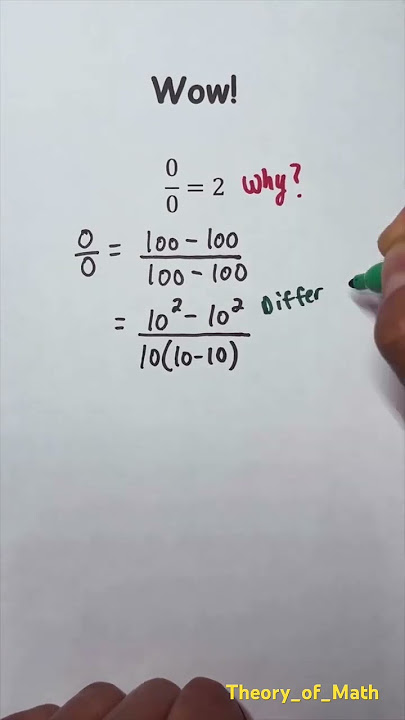 Wow!
0/0 = 2 Why?
0/0 = (100 - 100)/(100 - 100)
= (10² - 10²)/(10(10-10)) Differ
Theory_of_Math